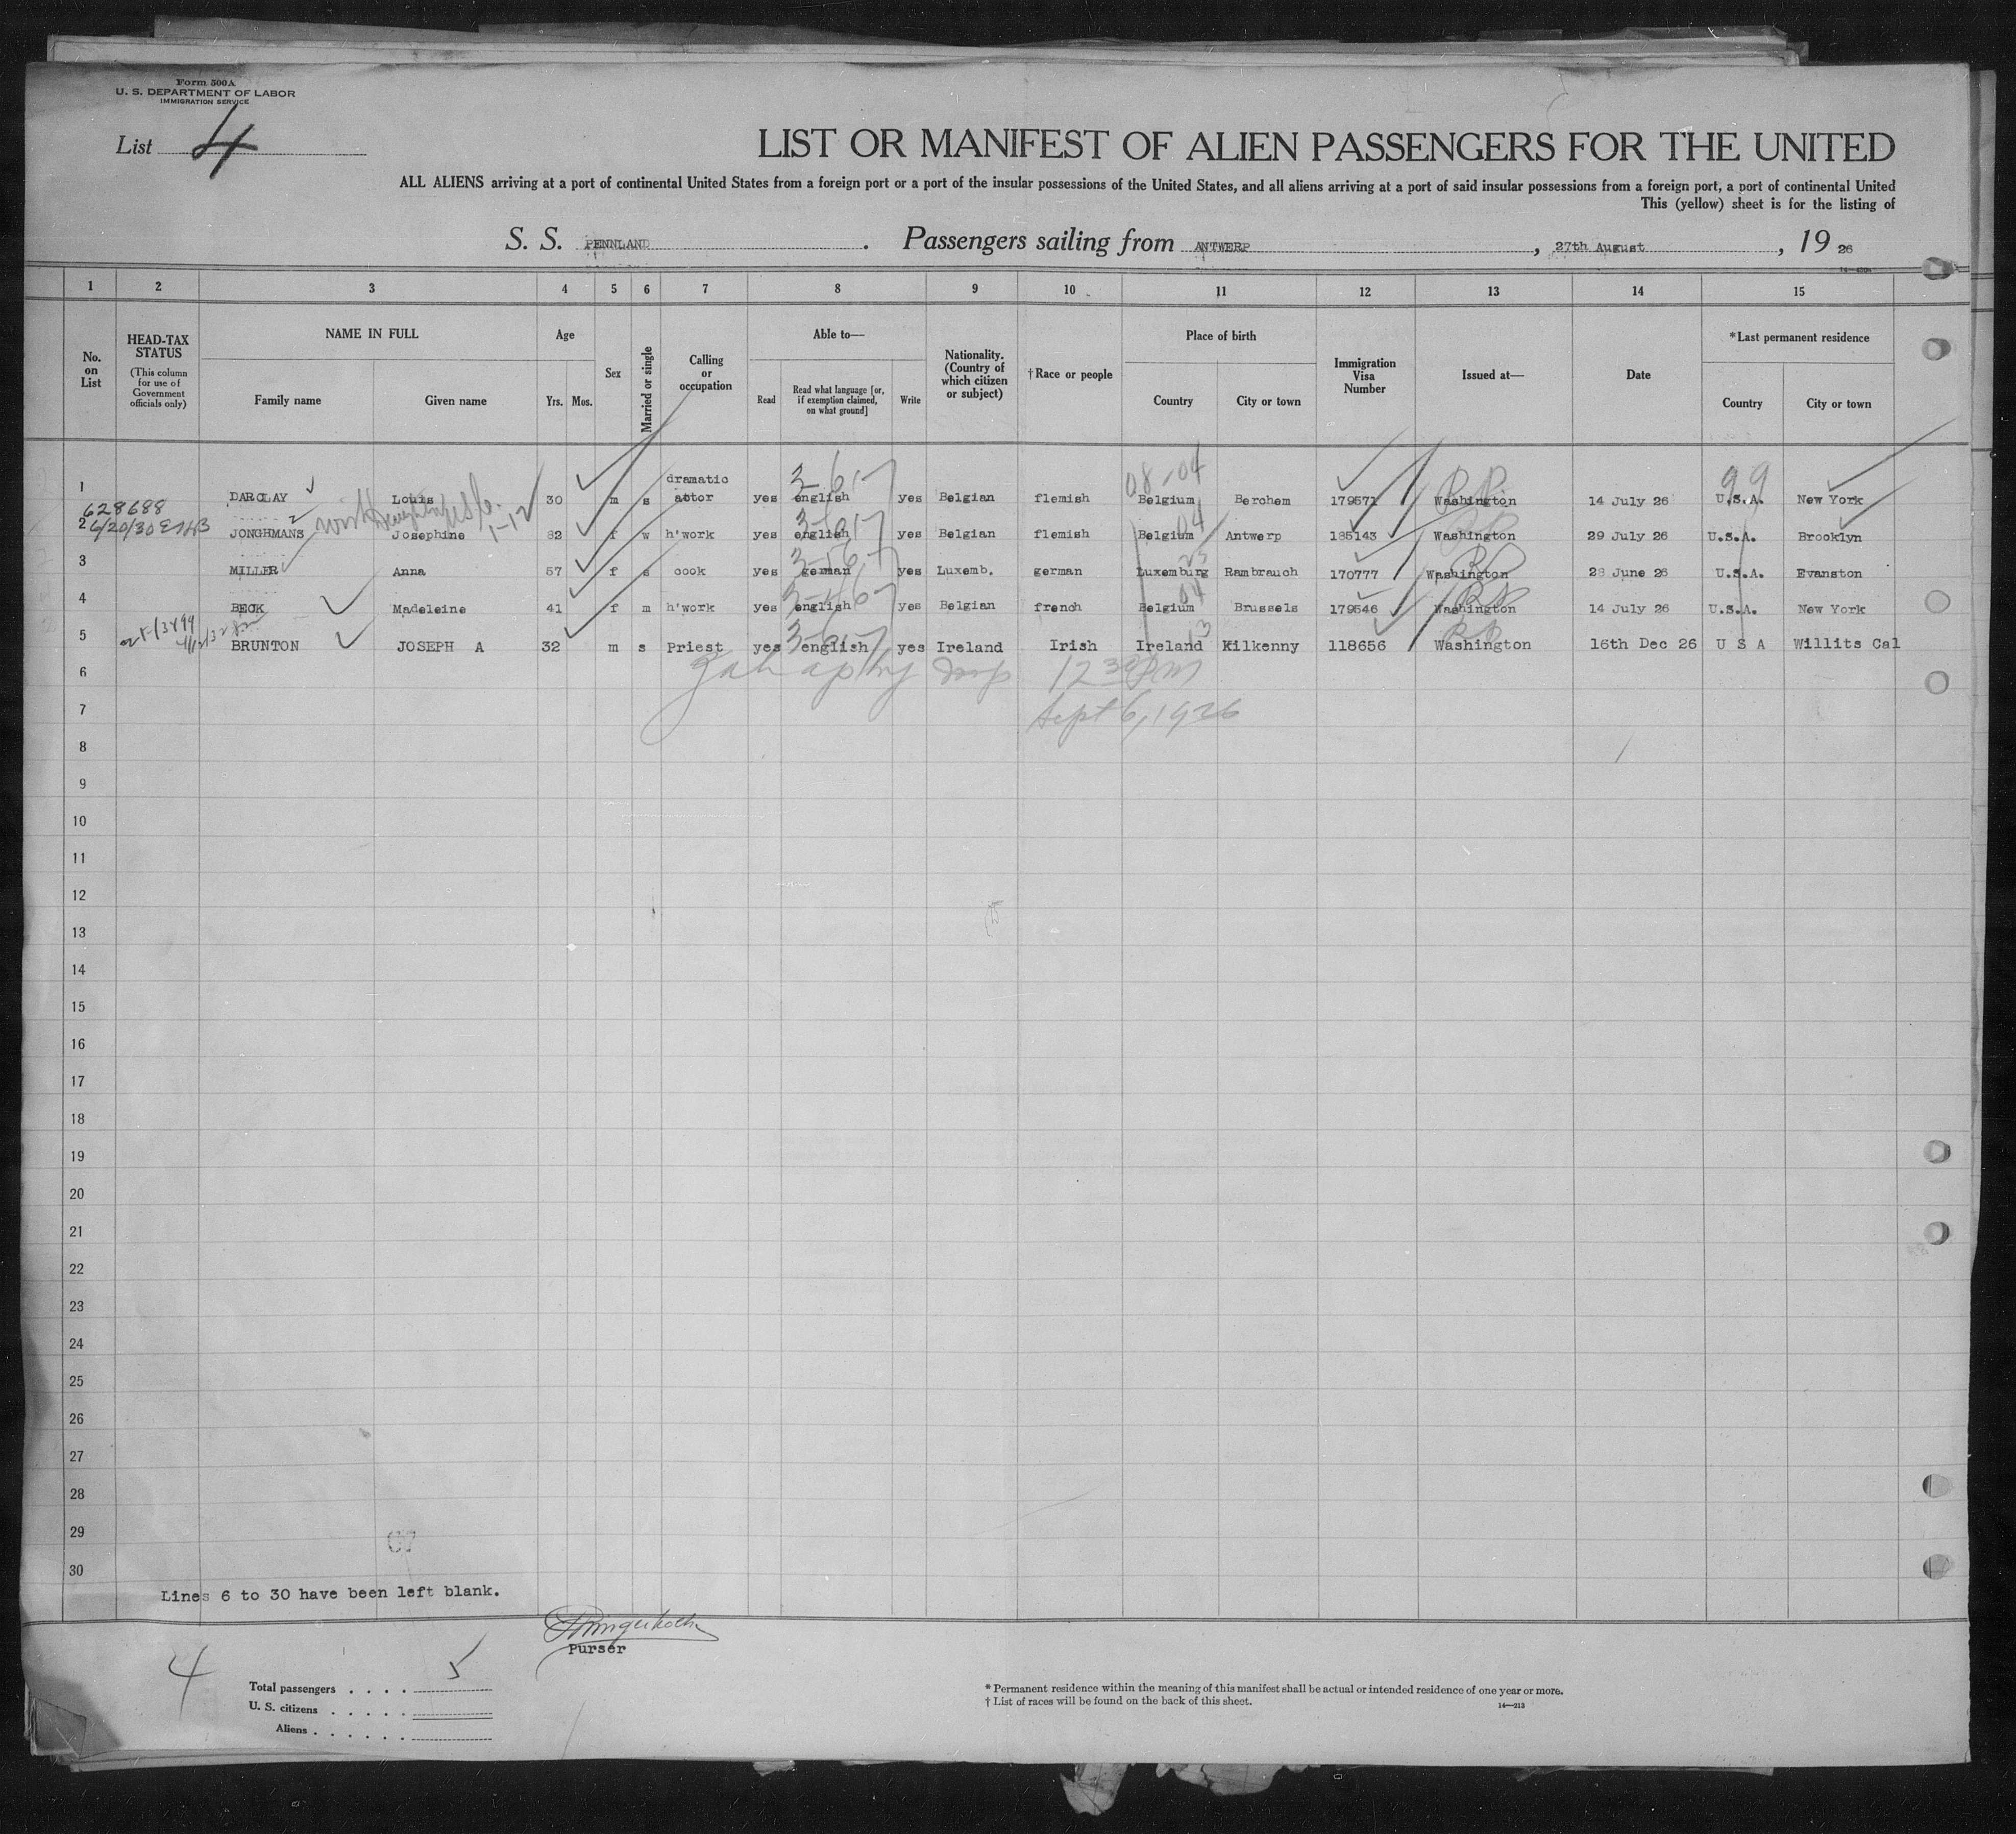 Form 500A
U. S. DEPARTMENT OF LABOR
IMMIGRATION SERVICE
List 4
LIST OR MANIFEST OF ALIEN PASSENGERS FOR THE UNITED
ALL ALIENS arriving at a port of continental United States from a foreign port or a port of the insular possessions of the United States, and all aliens arriving at a port of said insular possessions from a foreign port, a port of continental United
This (yellow) sheet is for the listing of
S. S. PENNLAND . Passengers sailing from ANTWERP , 27th August , 19 26
1 2 3 4 5 6 7 8 9 10 11 12 13 14 15
No. on List
HEAD-TAX STATUS
(This column for use of Government officials only)
NAME IN FULL
Family name
Given name
Age
Yrs. Mos.
Sex
Married or single
Calling or occupation
Able to—
Read
Read what language [or, if exemption claimed, on what ground]
Write
Nationality. (Country of which citizen or subject)
†Race or people
Place of birth
Country
City or town
Immigration Visa Number
Issued at—
Date
*Last permanent residence
Country
City or town
08-04
99
1 DARCLAY Louis 30 m s dramatic actor yes english yes Belgian flemish Belgium Berchem 179571 Washington 14 July 26 U.S.A. New York
628688
6/20/30
2 JONGHMANS Josephine 1-12 82 f w h'work yes english yes Belgian flemish Belgium 04 Antwerp 185143 Washington 29 July 26 U.S.A. Brooklyn
3 MILLER Anna 57 f s cook yes german yes Luxemb. german Luxemburg Rambrauch 170777 Washington 28 June 26 U.S.A. Evanston
4 BECK Madeleine 41 f m h'work yes english yes Belgian french Belgium 04 Brussels 179546 Washington 14 July 26 U.S.A. New York
5 BRUNTON JOSEPH A 32 m s Priest yes english yes Ireland Irish Ireland Kilkenny 118656 Washington 16th Dec 26 U S A Willits Cal
6 12 30 PM
7 Sept 6, 1926
8
9
10
11
12
13
14
15
16
17
18
19
20
21
22
23
24
25
26
27
28
29
30
Lines 6 to 30 have been left blank.
Purser
4
Total passengers . . . . 5
U. S. citizens . . . . .
Aliens . . . . . .
* Permanent residence within the meaning of this manifest shall be actual or intended residence of one year or more.
† List of races will be found on the back of this sheet.
14—213